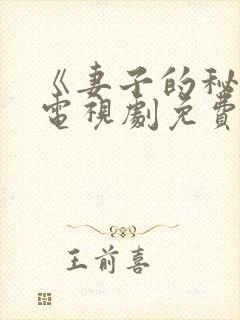 《妻子的秘
電視劇免費
王前喜